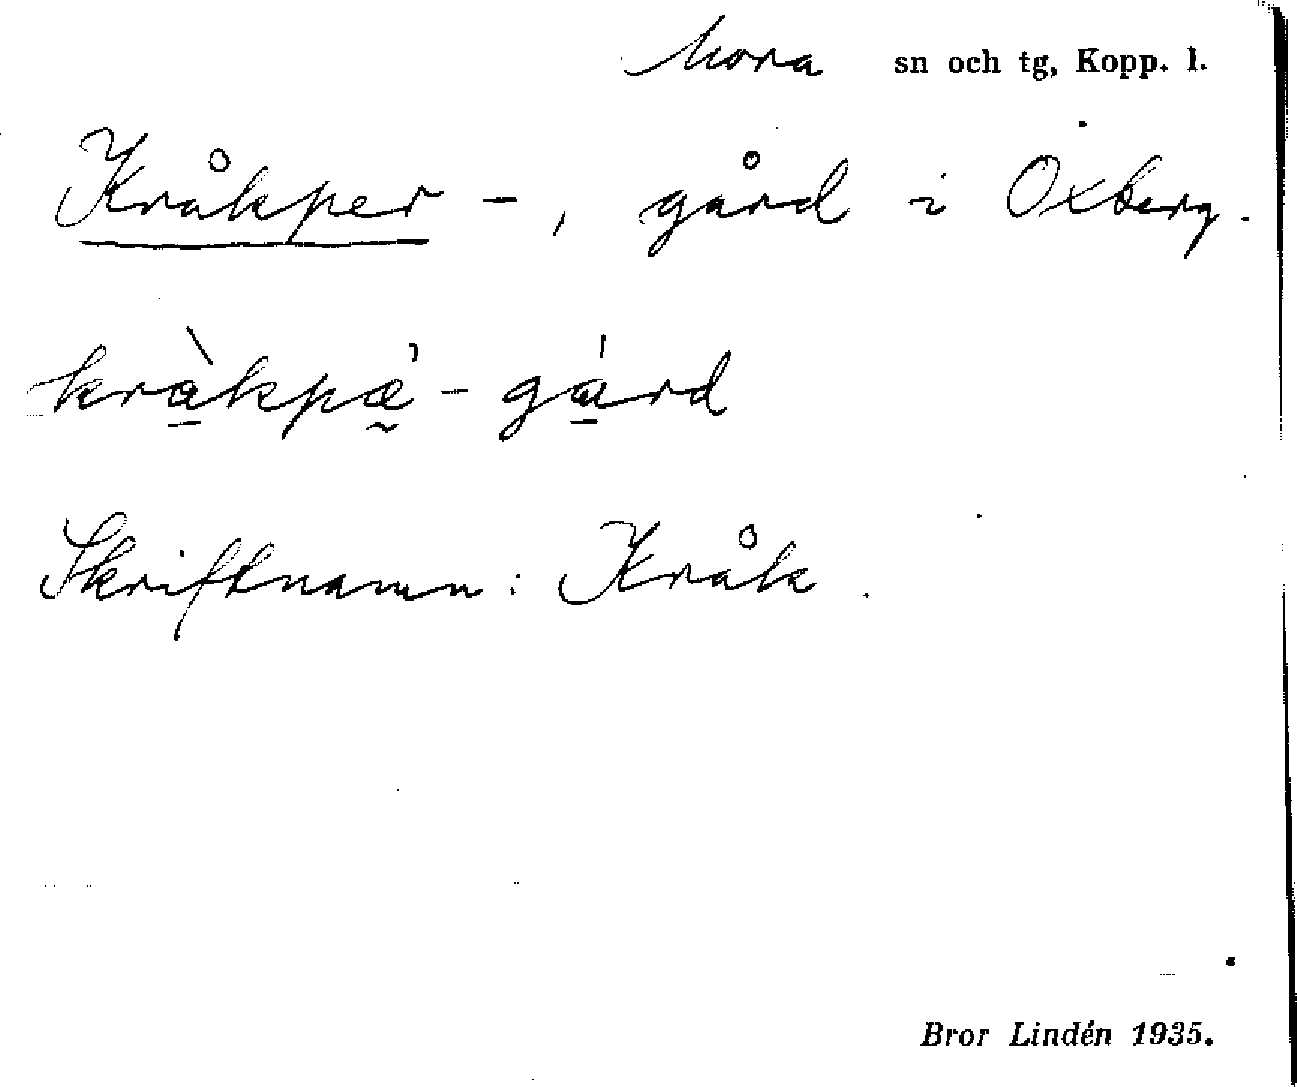 Mora sn och tg, Kopp. l.
Kråkper -, gård i Oxberg.
kràkpæ̰̀ - gárd
Skriftnamn: Kråk.
Bror Lindén 1935.